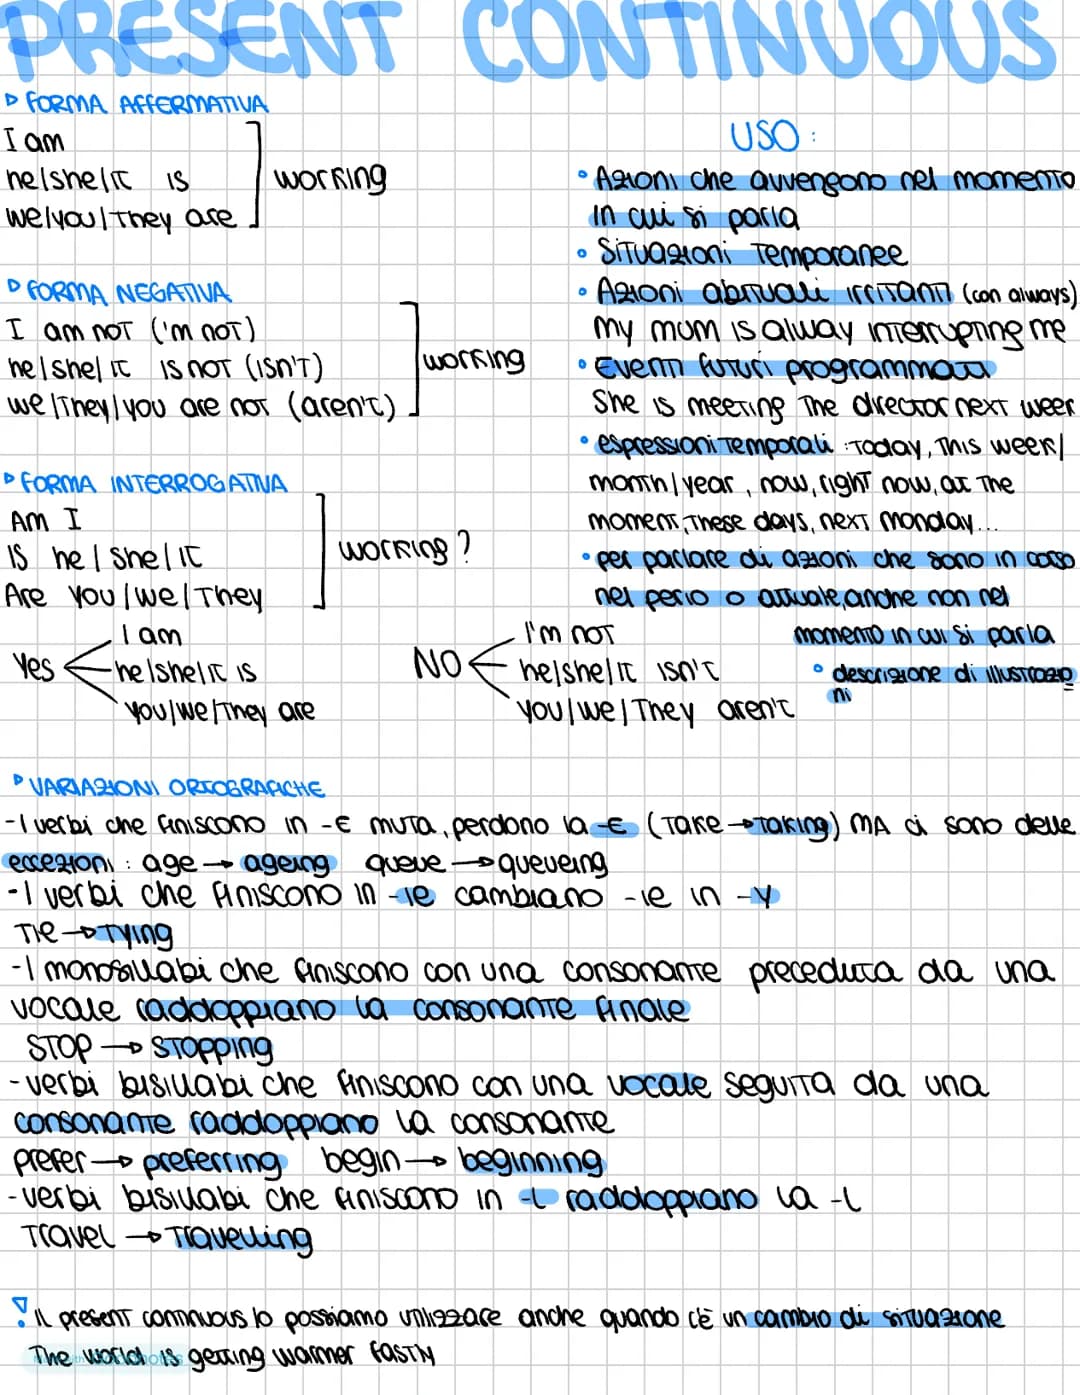 PRESENT CONTINUOUS
▷ FORMA AFFERMATIVA
I am
he/she/it is
we/you/they are
working
▷ FORMA NEGATIVA
I am not ('m not)
he/she/it is not (isn't)
we/they/you are not (aren't)
working
▷ FORMA INTERROGATIVA
Am I
Is he/she/it
Are you/we/they
working?
Yes
I am
he/she/it is
you/we/they are
NO
I'm not
he/she/it isn't
you/we/they aren't
USO:
• Azioni che avvengono nel momento
in cui si parla
• Situazioni temporanee
• Azioni abituali irritanti (con always)
My mum is alway interrupting me
• Eventi futuri programmati
She is meeting the director next week
• espressioni temporali: today, this week/
month/year, now, right now, at the
moment, these days, next monday...
• per parlare di azioni che sono in corso
nel perio o attuale, anche non nel
momento in cui si parla
• descrizione di illustrazio
ni
▷ VARIAZIONI ORTOGRAFICHE
- I verbi che finiscono in -e muta, perdono la -e (take → taking) MA ci sono delle
eccezioni: age → ageing queue → queueing
- I verbi che finiscono in -ie cambiano -ie in -y
Tie → tying
- I monosillabi che finiscono con una consonante preceduta da una
vocale raddoppiano la consonante finale
STOP → stopping
- verbi bisillabi che finiscono con una vocale seguita da una
consonante raddoppiano la consonante
prefer → preferring begin → beginning
- verbi bisillabi che finiscono in -l raddoppiano la -l
Travel → Travelling
Il present continuous lo possiamo utilizzare anche quando c'è un cambio di situazione
The world is getting warmer fastly